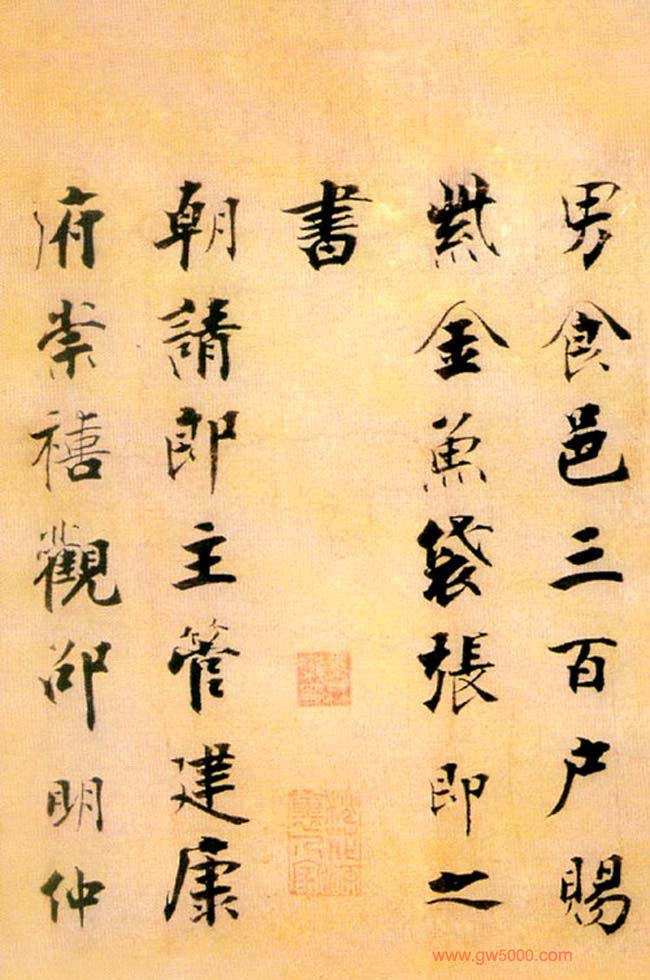 男食邑三百户賜
紫金魚袋張即之
書
朝請郎主管建康
府崇禧觀邵明仲
www.gw5000.com